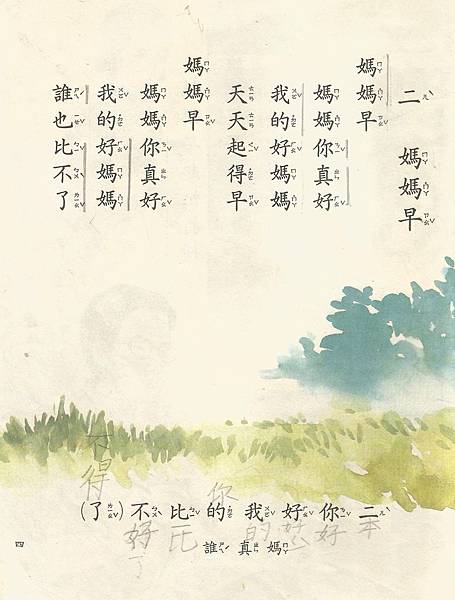 二 媽媽早
媽媽早
媽媽你真好
我的好媽媽
天天起得早
媽媽早
媽媽你真好
我的好媽媽
誰也比不了
不得
你
二你好我的比不(了)
媽真誰
四